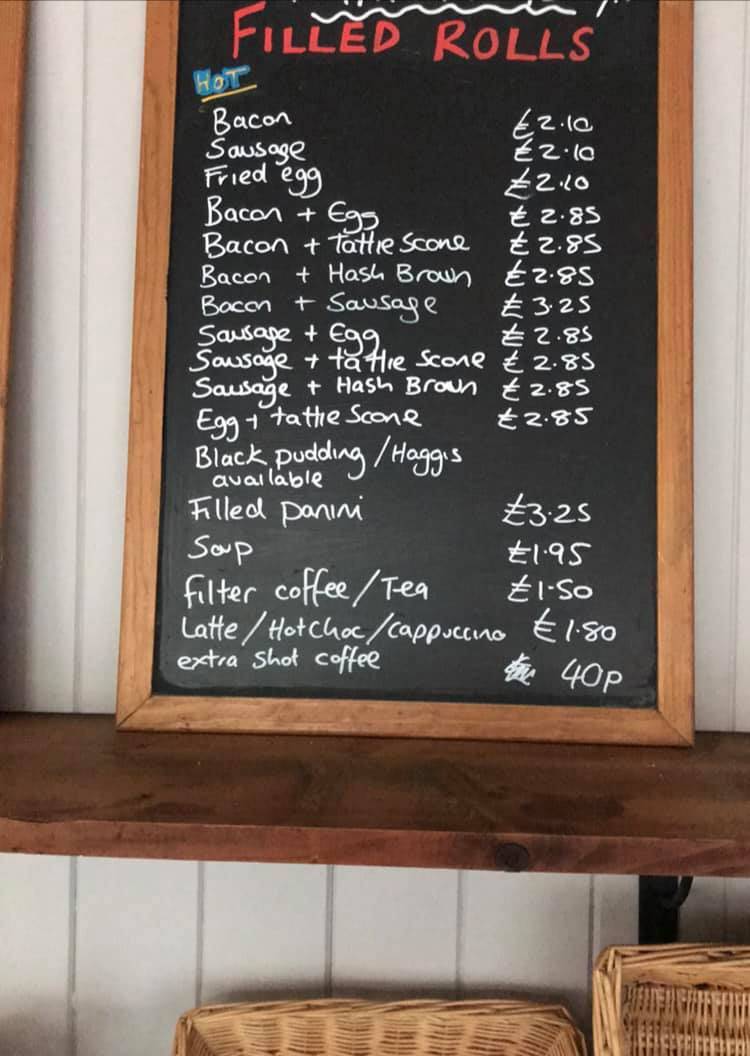 FILLED ROLLS
HOT
Bacon £2.10
Sausage £2.10
Fried egg £2.10
Bacon + Egg £2.85
Bacon + Tattie Scone £2.85
Bacon + Hash Brown £2.85
Bacon + Sausage £3.25
Sausage + Egg £2.85
Sausage + tattie Scone £2.85
Sausage + Hash Brown £2.85
Egg + tattie Scone £2.85
Black pudding/Haggis
available
Filled panini £3.25
Soup £1.95
filter coffee/Tea £1.50
Latte/Hot Choc/cappuccino £1.80
extra shot coffee 40p